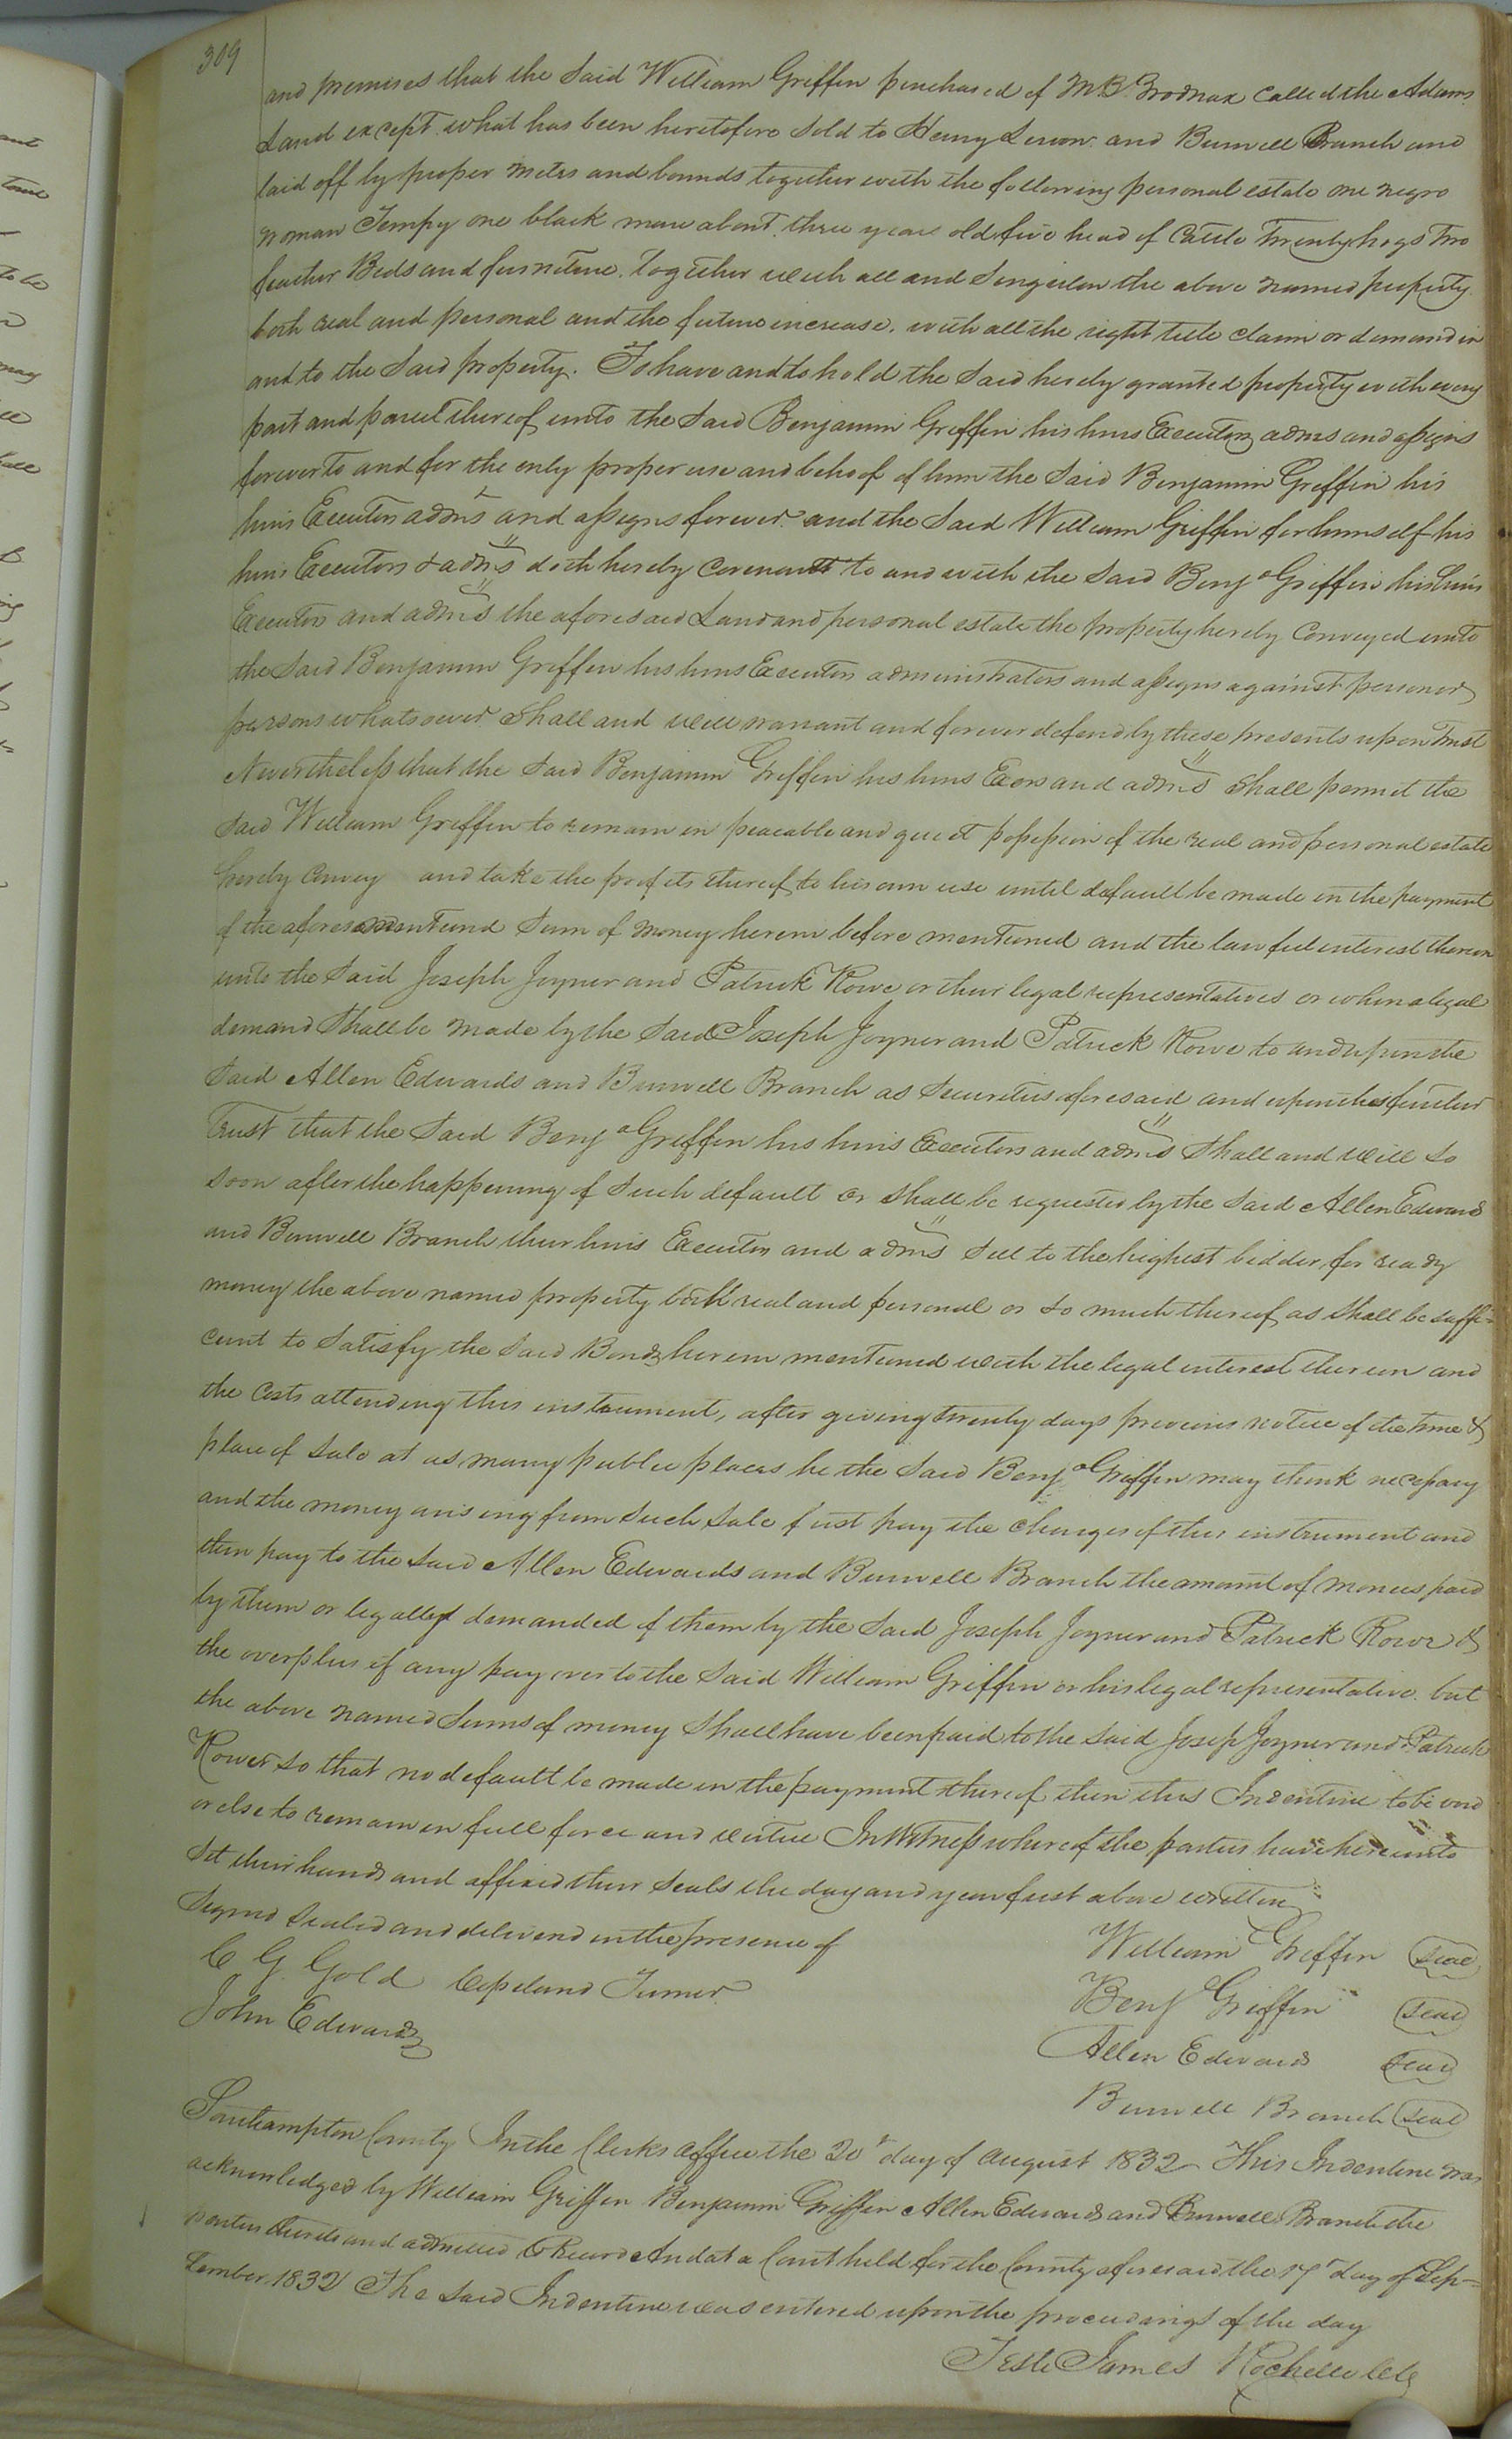 309
and premises that the said William Griffin purchased of M B Brodnax called the Adams
Land except what has been heretofore sold to Henry and Burwell Branch and
laid off by proper metes and bounds together with the following personal estate one negro
woman Tempy one black mare about three years old five head of Cattle Twenty hogs Two
feather Beds and furniture. Together with all and Singular the above named property
both real and personal and the future increase. with all the right title claim or demand in
and to the said property. To have and to hold the said hereby granted property with every
part and parcel thereof unto the said Benjamin Griffin his heirs Executors adms and assigns
forever to and for the only proper use and behoof of him the Said Benjamin Griffin his
heirs Executors adms and assigns forever. and the Said William Griffin for himself his
heirs Executors & adms doth hereby Covenant to and with the Said Benja Griffin his heirs
Executors and adms the aforesaid Land and personal estate the property hereby Conveyed unto
the Said Benjamin Griffin his heirs Executors administrators and assigns against person or
persons whatsoever Shall and will warrant and forever defend by these presents upon Trust
Nevertheless that the Said Benjamin Griffin his heirs Exors and adms Shall permit the
Said William Griffin to remain in peaceable and quiet possession of the real and personal estate
hereby Convey and take the profits thereof to his own use until default be made in the payment
of the aforesmentiond Sum of money herein before mentioned and the lawful interest thereon
unto the Said Joseph Joyner and Patrick Rowe or their legal representatives or when a legal
demand Shall be made by the Said Joseph Joyner and Patrick Rowe to and upon the
Said Allen Edwards and Burwell Branch as Securities aforesaid and upon this further
Trust that the Said Benja Griffin his heirs Executors and adms Shall and will So
Soon after the happening of Such default or Shall be requested by the Said Allen Edwards
and Burwell Branch their heirs Executors and adms Sell to the highest bidder for ready
money the above named property both real and personal or so much thereof as Shall be suffi=
cient to Satisfy the Said Bonds herein mentioned with the legal interest thereon and
the Costs attending this instrument, after giving twenty days previous notice of the time &
place of Sale at as many public places he the Said Benja Griffin may think necessary
and the money arising from Such Sale first pay the charges of this instrument and
then pay to the Said Allen Edwards and Burwell Branch the amount of monies paid
by them or legally demanded of them by the Said Joseph Joyner and Patrick Rowe &
the overplus if any pay over to the Said William Griffin or his legal representative. but
the above named Sums of money Shall have been paid to the Said Josep Joyner and Patrick
Rowe so that no default be made in the payment thereof then this Indenture to be void
or else to remain in full force and virtue In Witness whereof the parties have hereunto
Set their hands and affixed their Seals the day and year first above written
Signed Sealed and deliverd in the presence of
C G. Gold Copeland Turner
John Edwards
William Griffin Seal
Benj Griffin Seal
Allen Edwards Seal
Burwell Branch Seal
Southampton County In the Clerks office the 20th day of August 1832 This Indenture was
acknowledged by William Griffin Benjamin Griffin Allen Edwards and Burwell Branch the
parties thereto and admitted to Record And at a Court held for the County aforesaid the 17th day of Sep=
tember 1832 The Said Indenture was entered upon the proceedings of the day
Teste James Rochelle Clk